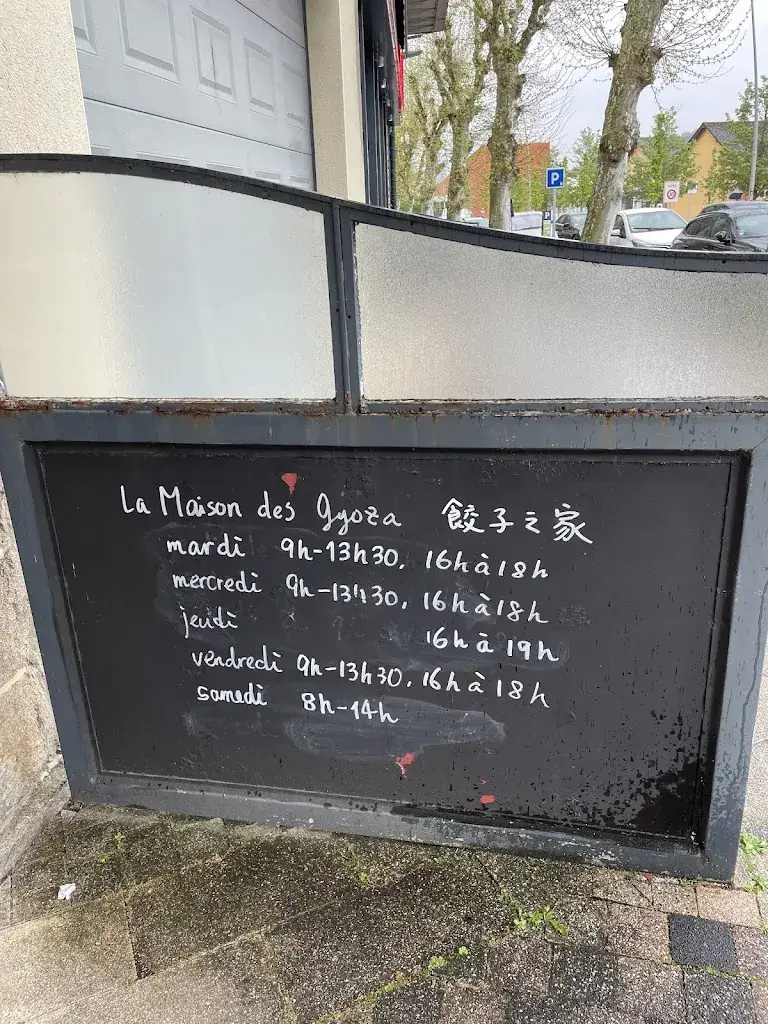 P
La Maison des Gyoza 餃子之家
mardi 9h-13h30, 16h à 18h
mercredi 9h-13h30, 16h à 18h
jeudi 16h à 19h
vendredi 9h-13h30, 16h à 18h
samedi 8h-14h